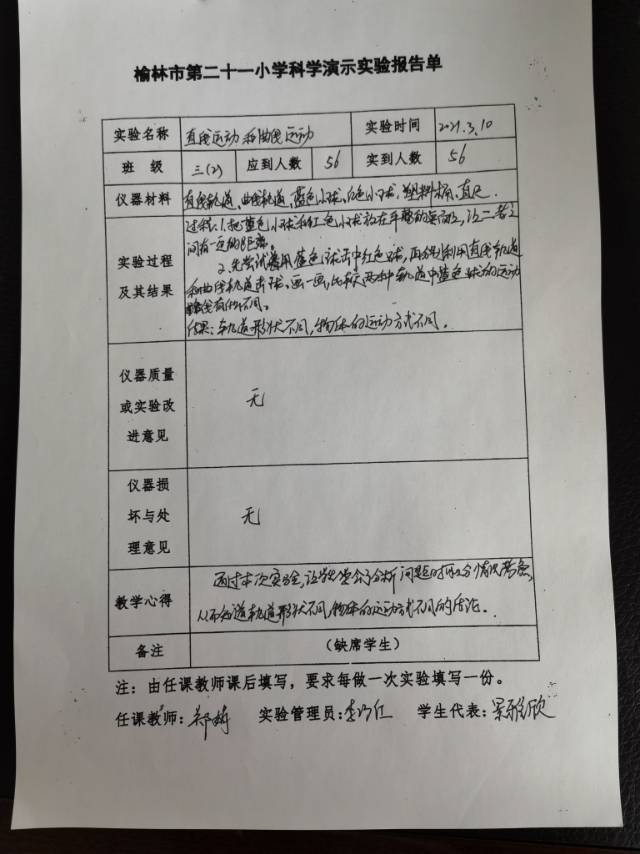 榆林市第二十一小学科学演示实验报告单
实验名称 直线运动和曲线运动 实验时间 2021.3.10
班 级 三(2) 应到人数 56 实到人数 56
仪器材料 直线轨道、曲线轨道、蓝色小球、红色小球、塑料桶、直尺
实验过程及其结果
过程:1.把蓝色小球和红色小球放在平整的桌面上,让二者之
间有一定的距离。
2.先尝试着用蓝色小球击中红色球,再分别利用直线轨道
和曲线轨道击球。画一画,比较两种轨道中蓝色球的运动
路线有何不同。
结果:轨道形状不同,物体的运动方式不同。
仪器质量
或实验改
进意见
无
仪器损
坏与处
理意见
无
教学心得
通过本次实验,让学生学会了分析问题时要分情况考虑,
从而知道轨道形状不同,物体的运动方式不同的结论。
备注 (缺席学生)
注:由任课教师课后填写,要求每做一次实验填写一份。
任课教师:郑梅 实验管理员:李巧红 学生代表:景雅欣